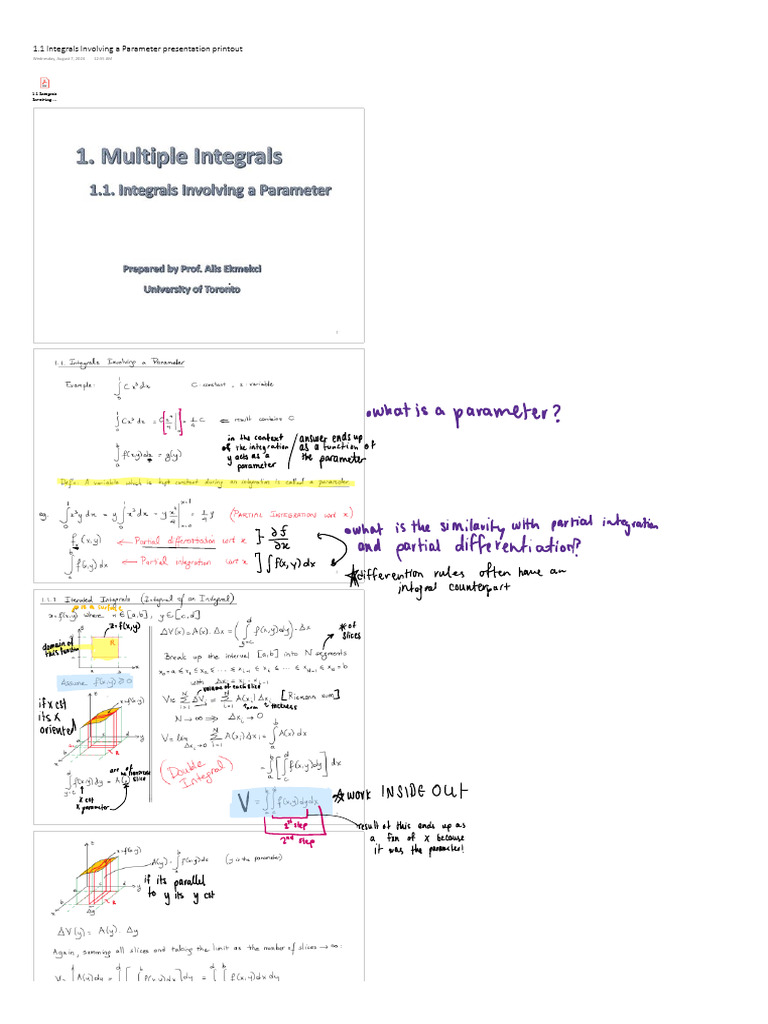 1.1 Integrals Involving a Parameter presentation printout
Wednesday, August 7, 2024 12:01 AM
1.1 Integrals
Involving ...
1. Multiple Integrals
1.1. Integrals Involving a Parameter
Prepared by Prof. Alis Ekmekci
University of Toronto
1
1.1. Integrals Involving a Parameter
Example: ∫₀¹ Cx³dx C-constant, x-variable
∫₀¹ Cx³dx = C[x⁴/4]₀¹ = 1/4 C ⇐ result contains C
•what is a parameter?
∫ₐᵇ f(x,y)dx = g(y)
in the context
of the integration
y acts as a
parameter
answer ends up
as a function of
the parameter
Defn: A variable which is kept constant during an integration is called a parameter
eg. ∫₀¹ x³y dx = y ∫₀¹ x³dx = y x⁴/4 |ₓ₌₀ˣ⁼¹ = 1/4 y (PARTIAL INTEGRATION wrt x)
fₓ(x,y) ← Partial differentiation wrt x ]- ∂f/∂x
∫ f(x,y)dx ← Partial integration wrt x ] ∫f(x,y)dx
•what is the similarity with partial integration
and partial differentiation?
*differention rules often have an
integral counterpart
1.1.1 Iterated Integrals (Integral of an Integral)
is a surface
z=f(x,y) where x∈[a,b], y∈[c,d]
z=f(x,y)
domain of
R
Assume f(x,y)≥0
if x cst
its x
oriented
z=f(x,y)
∫ f(x,y)dy = A(x)
x cst
x parameter
ΔV(x)=A(x).Δx = (∫ f(x,y)dy).Δx
# of
slices
Break up the interval [a,b] into N segments
x₀=a≤x₁≤x₂≤ ... ≤xᵢ₋₁≤xᵢ≤ ... ≤x_N₋₁≤x_N=b
with Δxᵢ=xᵢ-xᵢ₋₁
volume of each slice
V≈ Σ ΔVᵢ = Σ A(xᵢ)Δxᵢ [Riemann sum]
thickness
N→∞ ⟹ Δxᵢ→0
V= lim Σ A(xᵢ)Δxᵢ = ∫ₐᵇ A(x)dx
(Double
Integral)
= ∫ₐᵇ[∫ f(x,y)dy] dx
V = ∫∫ f(x,y)dydx
*WORK INSIDE OUT
1st step
2nd step
result of this ends up as
a fxn of x because
it was the parameter!
z=f(x,y)
A(y) = ∫ₐᵇ f(x,y)dx (y is the parameter)
if its parallel
to y its y cst
R
Δy
ΔV(y)= A(y).Δy
Again, summing all slices and taking the limit as the number of slices →∞:
V= ∫ A(y)dy = ∫[∫ f(x,y)dx]dy = ∫∫ f(x,y)dx dy